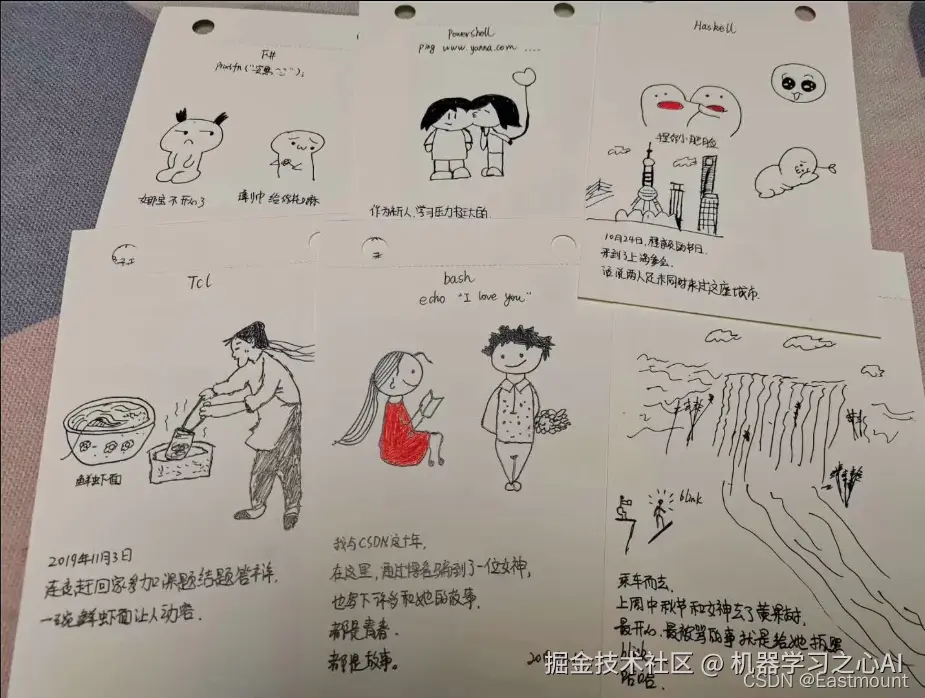 F#
printfn("
娜宝不开心了
璋帅给你
Powershell
ping www.yanna.com ....
作为新人,学习压力挺大的.
Haskell
捏你小肥脸
10月24日,程序员的节日.
来到了上海参会.
话说两人还未同时来过这座城市.
Tcl
鲜虾面
2019年11月3日
连夜赶回家参加课题结题答辩,
一碗鲜虾面让人动容.
bash
echo "I love you"
我与CSDN这十年,
在这里,通过博客骗到了一位女神,
也写下许多和她的故事.
都是青春.
都是故事。
blink
乘车而去.
上周中秋节和女神去了黄果树,
最开心,最被骂的事就是给她拍照
blink
哈哈.
掘金技术社区 @ 机器学习之心AI
CSDN @Eastmount